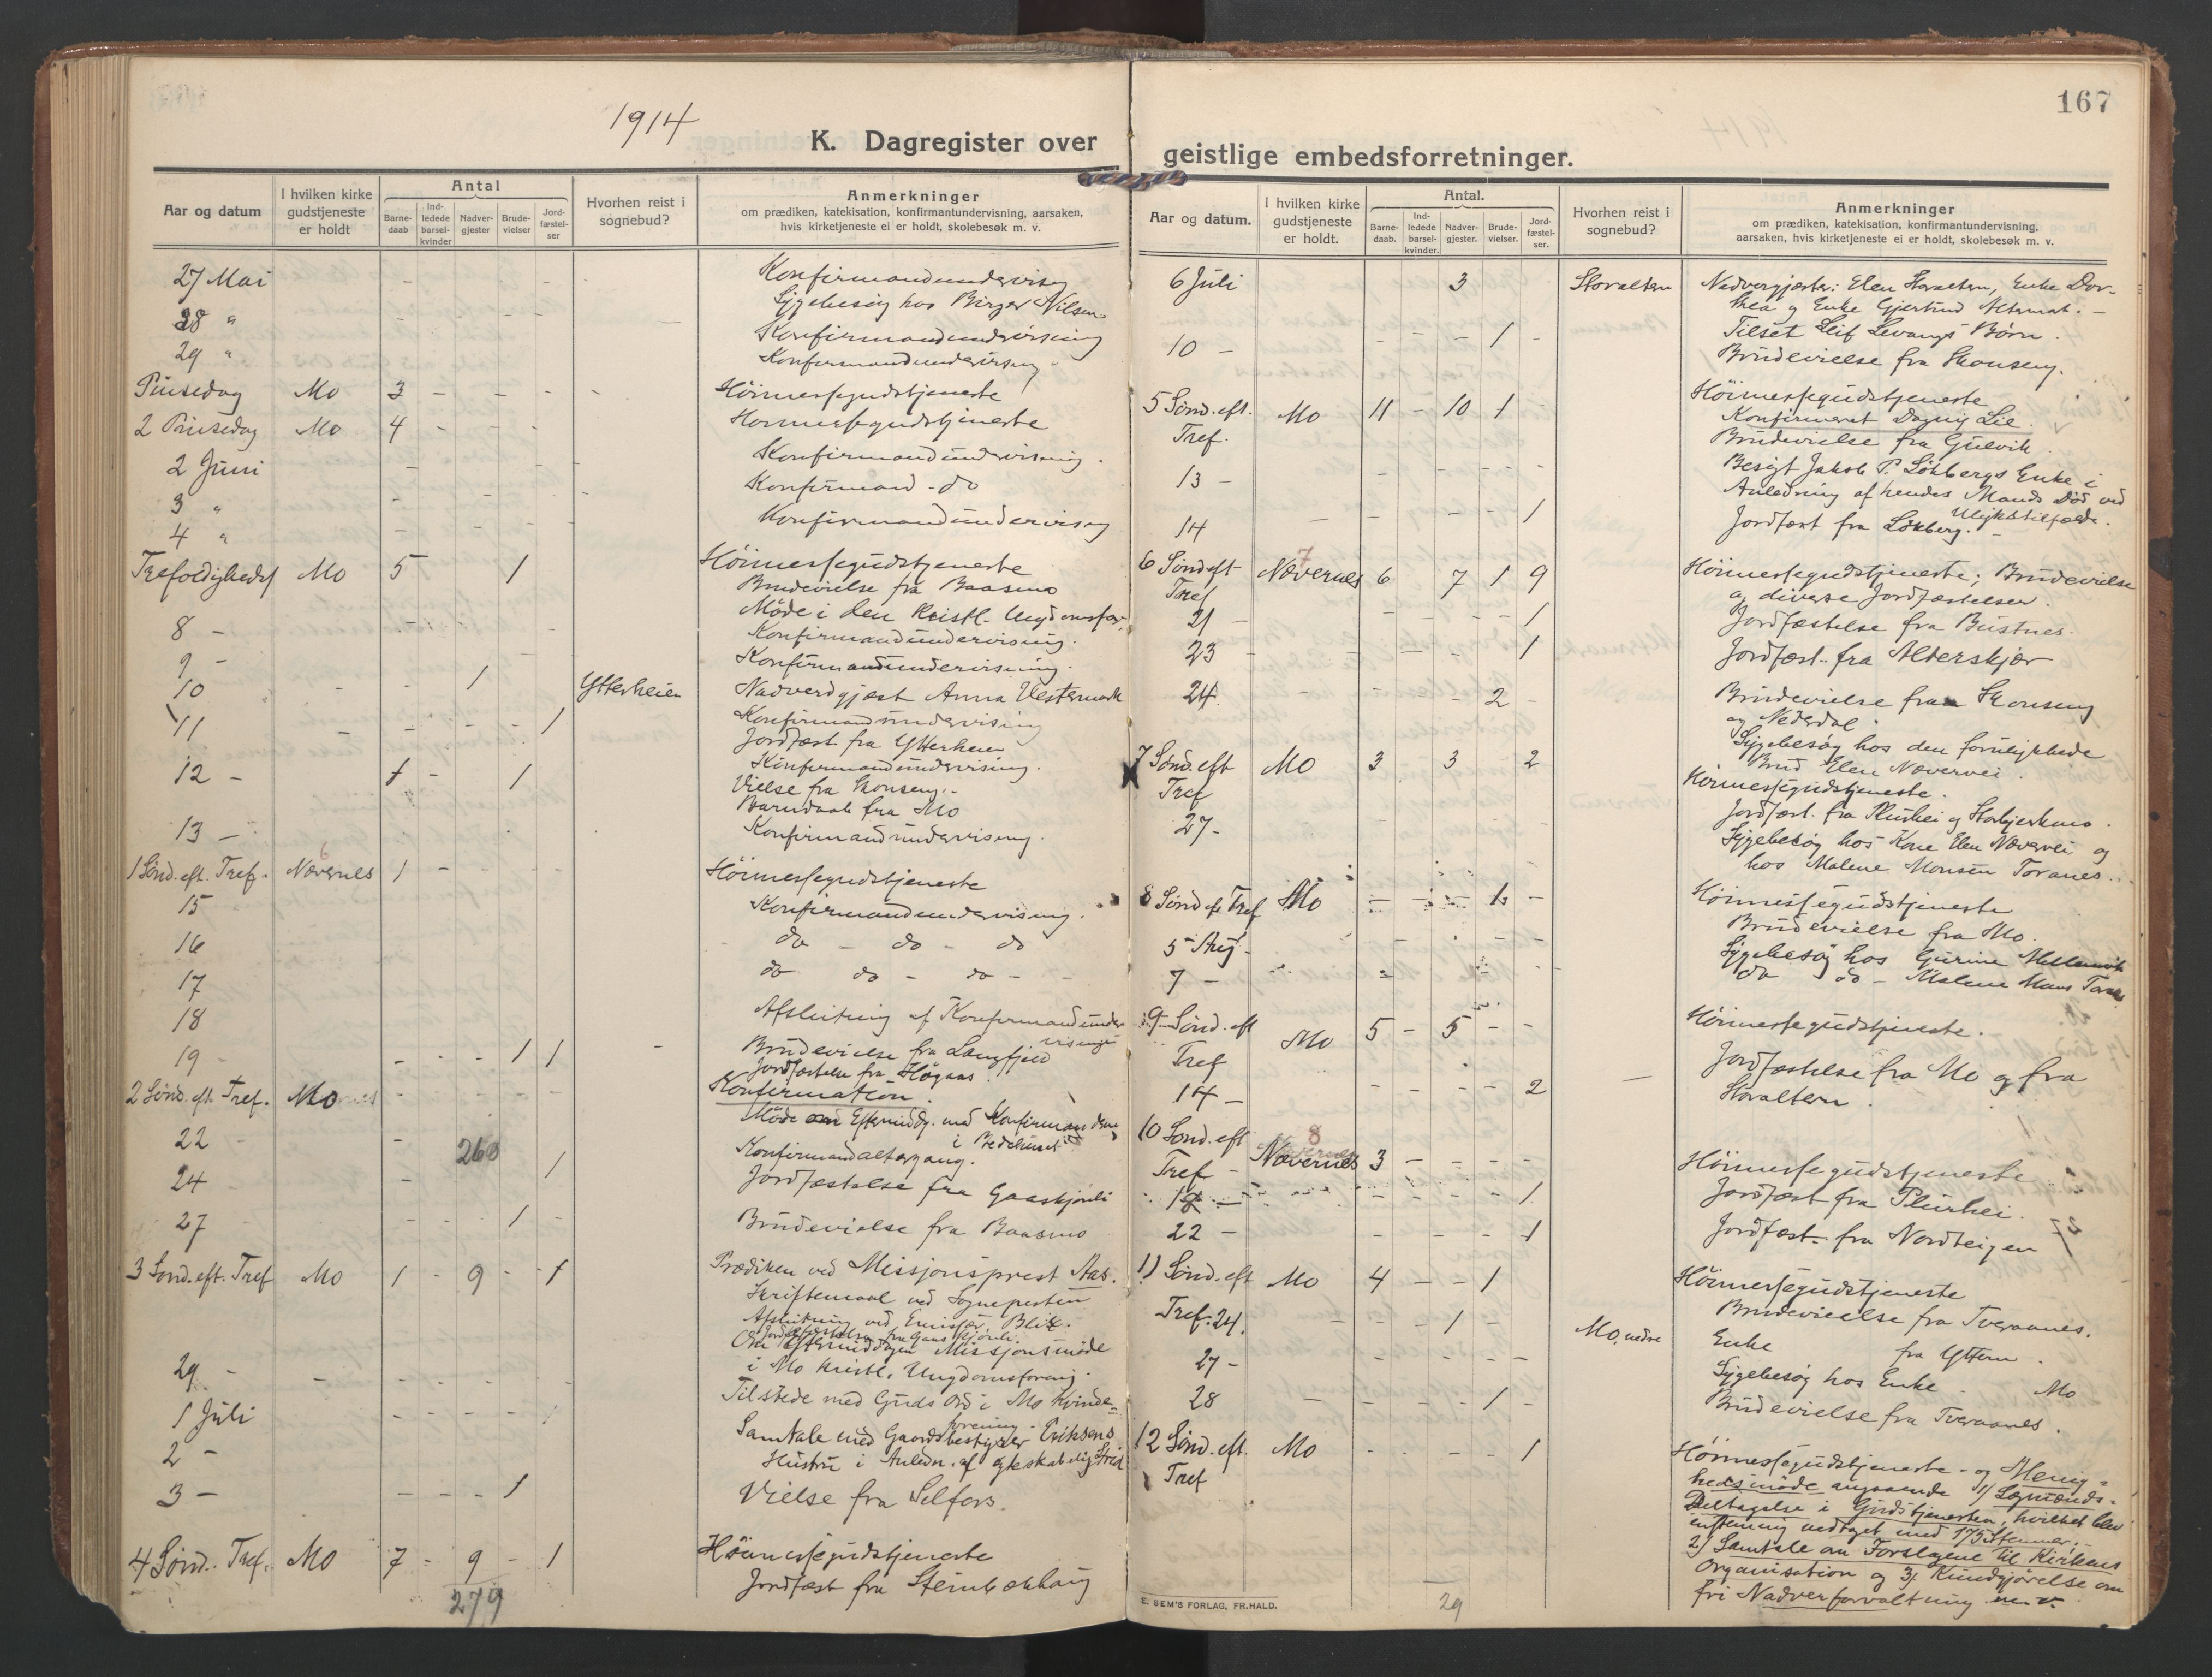 1914
K. Dagregister over
Aar og datum
I hvilken kirke gudstjeneste er holdt
Antal
Barnedaab
Indledede barselkvinder
Nadvergjester
Brudevielser
Jordfæstelser
Hvorhen reist i sognebud?
Anmerkninger
om prædiken, katekisation, konfirmantundervisning, aarsaken,
hvis kirketjeneste ei er holdt, skolebesøk m. v.
27 Mai Konfirmandundervisng
Sygebesøg hos Birger Nilsen
28 " Konfirmandundervisning
29 " Konfirmandundervisng
Pinsedag Mo 3 - - - - Höimessegudstjeneste
2 Pinsedag Mo 4 - - - Höimessegudstjeneste
2 Juni Konfirmandundervisning.
3 " Konfirmand - do
4 " Konfirmandundervisng
Trefoldighedsf Mo 5 1 Höimessegudstjeneste
Brudevielse fra Baasmo
Møde i den Kristl. Ungdomsfor.
8 - Konfirmandundervisning.
9 - Konfirmandundervisning.
10 - - 1 Ytterheien Nadverdgjest Anna Vestermark
11 - - - - - 1 Konfirmandundervisning
Jordfæst fra Ytterheien
12 - 1 - 1 Konfirmandundervisning.
Vielse fra Skonseng.
Barndaab fra Mo
13 - Konfirmandundervisning.
6
1 Sønd. eft. Tref. Nævernes 1 - Höimessegudstjeneste
15 Konfirmandundervisning.
16 do - do - do
17 do do - do - -
18 Afslutning af Konfirmandunder
visning
19 - - - - 1 1 - Brudevielse fra Langfjeld
Jordfæstelse fra Høgaas.
2 Sønd. eft. Tref. Mo - - - - Konfirmation.
Møde om Eftermiddg. med Konfirmandene
i Bedehuset
22 - 260 Konfirmandaltergang.
24 - 1 Jordfæstelse fra Gaaskjönli
27 - - - 1 - Brudevielse fra Baasmo
3 Sönd. eft. Tref Mo 1 - 9 - 1 Prædiken ved Missjonsprest Aas.
Skriftemaal ved Sognepresten
Afslutning ved Emissær Blix.
Jordfæstelse fra Gaaskjönli.
Om Eftermiddagen Missjonsmöde
29 - i Mo Kristl. Ungdomsforening.
1 Juli Tilstede med Guds Ord i Mo Kvinde=
forening.
2 - Samtale med Gaardsbestyrer Eriksens
Hustru i Anledn. af egteskabelig Strid
3 - - - - 1 Vielse fra Selfors.
4 Sønd. Tref. Mo 7 - 9 - 1 Höimessegudstjeneste
Jordfæst fra Steinbækhaug
279
167
geistlige embedsforretninger.
Aar og datum.
I hvilken kirke gudstjeneste er holdt.
Antal.
Barnedaab.
Indledede barselkvinder.
Nadvergjester.
Brudevielser.
Jordfæstelser.
Hvorhen reist i sognebud?
Anmerkninger
om prædiken, katekisation, konfirmantundervisning,
aarsaken, hvis kirketjeneste ei er holdt, skolebesøk m. v.
6 Juli 3 Storaltern Nadvergjester: Elen Storaltern, Enke Dor-
thea og Enke Gjertrud Alternat. -
Tilset Leif Levangs Børn.
10 - - - - 1 - Brudevielse fra Skonseng.
5 Sønd. eft. Tref. Mo 11 - 10 1 Höimessegudstjeneste
Konfirmeret Dagny Lie.
Brudevielse fra Gulvik
13 - Besøgt Jakob P. Lökbergs Enke i
Anledning af hendes Mands Död ved
Ulykkestilfælde.
14 - - - - 1 Jordfæst fra Lökberg.
7
6 Sønd eft Tref Nævernes 6 7 1 9 Höimessegudstjeneste; Brudevielse
og diverse Jordfæstelser.
21 - - - - 1 Jordfæstelse fra Bustnes.
23 - - - - 1 Jordfæst. fra Alterskjær
24 - - - 2 - Brudevielse fra Skonseng
og Nederdal.
Sygebesög hos den forulykkede
Brud Elen Nævervei.
7 Sønd. eft Tref Mo 3 3 2 Höimessegudstjeneste.
Jordfæst. fra Plurhei og
27 - Sygebesög hos Kone Elen Nævervei og
hos Malene Monsen Toranes.
8 Sønd eft Tref Mo - - - 1 - Höimessegudstjeneste
Brudevielse fra Mo.
5 Aug - Sygebesög hos Gurine
7 - do do - Malene Mons
9 Sønd. eft Tref Mo 5 - 5 - - Höimessegudstjeneste.
14 - - - - - 2 - Jordfæstelse fra Mo og fra
Storaltern.
8
10 Sönd. eft Tref - Nævernes 3 - - - Höimessegudstjeneste
18 - - - - - 1 Jordfæst fra Plurhei.
22 - - - - - 1 Jordfæst. fra Nordteigen
11 Sönd. eft Tref. Mo 4 - - 1 Höimessegudstjeneste
Brudevielse fra Tveraanes.
24. - - - 1 - Mo, nedre Enke fra Yttern.
27 - - - - - Sygebesög hos Enke. Mo
28 - - - 1 - Brudevielse fra Tveraanes.
12 Sönd. eft. Tref Mo - - - - 1 Höimessegudstjeneste - og Menig=
hedsmöde angaaende 1) Lægmænds-
Deltagelse i Gudstjenesten, hvilket blev
enstemmig vedtaget med 175 Stemmer.
2) Samtale om Forslagene til Kirkens
Organisation og 3). Kundgjörelse om
fri Nadverforvaltning m. v.
E. SEM'S FORLAG, FR.HALD.
29